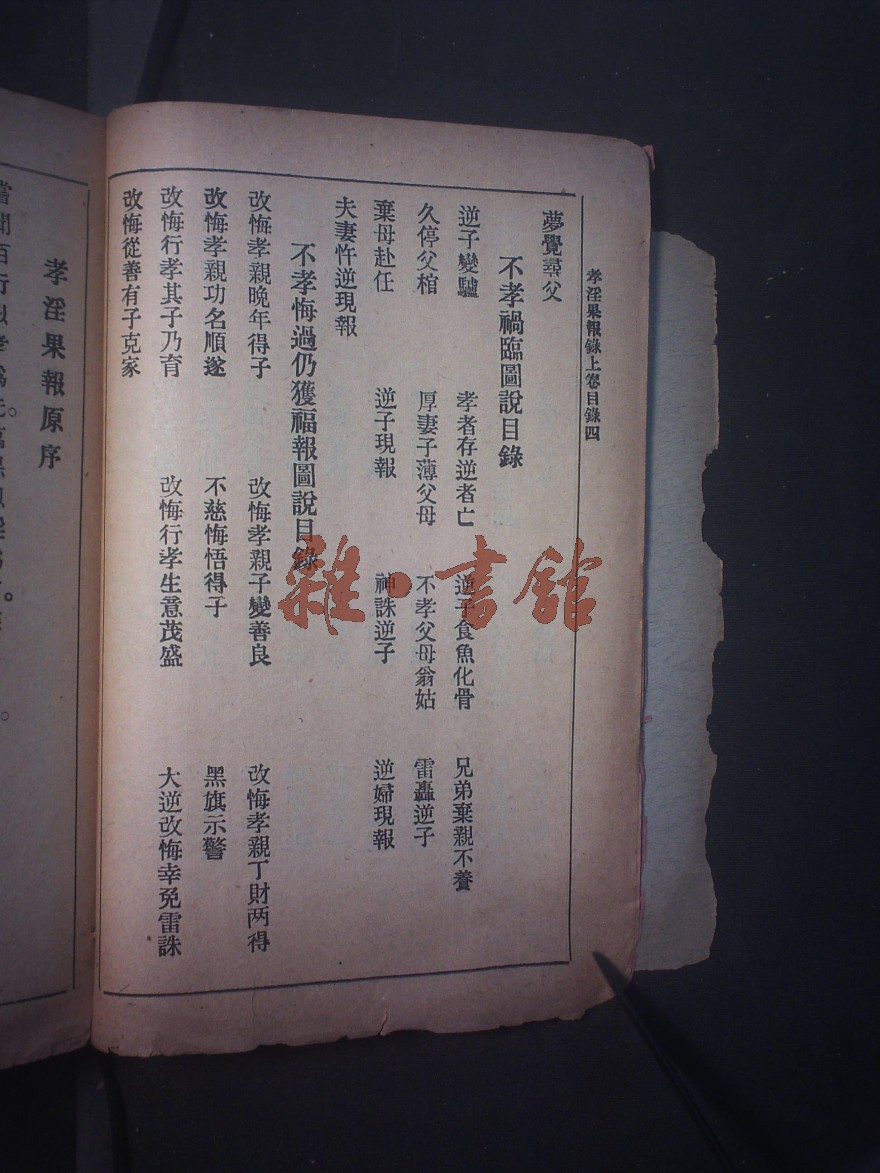 孝淫果報錄上卷目錄四
夢覺尋父
不孝禍臨圖說目錄
逆子變驢 孝者存逆者亡 逆子食魚化骨 兄弟棄親不養
久停父棺 厚妻子薄父母 不孝父母翁姑 雷轟逆子
棄母赴任 逆子現報 神誅逆子 逆婦現報
夫妻忤逆現報
不孝悔過仍獲福報圖說目錄
改悔孝親晚年得子 改悔孝親子變善良 改悔孝親丁財两得
改悔孝親功名順遂 不慈悔悟得子 黑旗示警
改悔行孝其子乃育 改悔行孝生意茂盛 大逆改悔幸免雷誅
改悔從善有子克家
孝淫果報原序
雜·書館